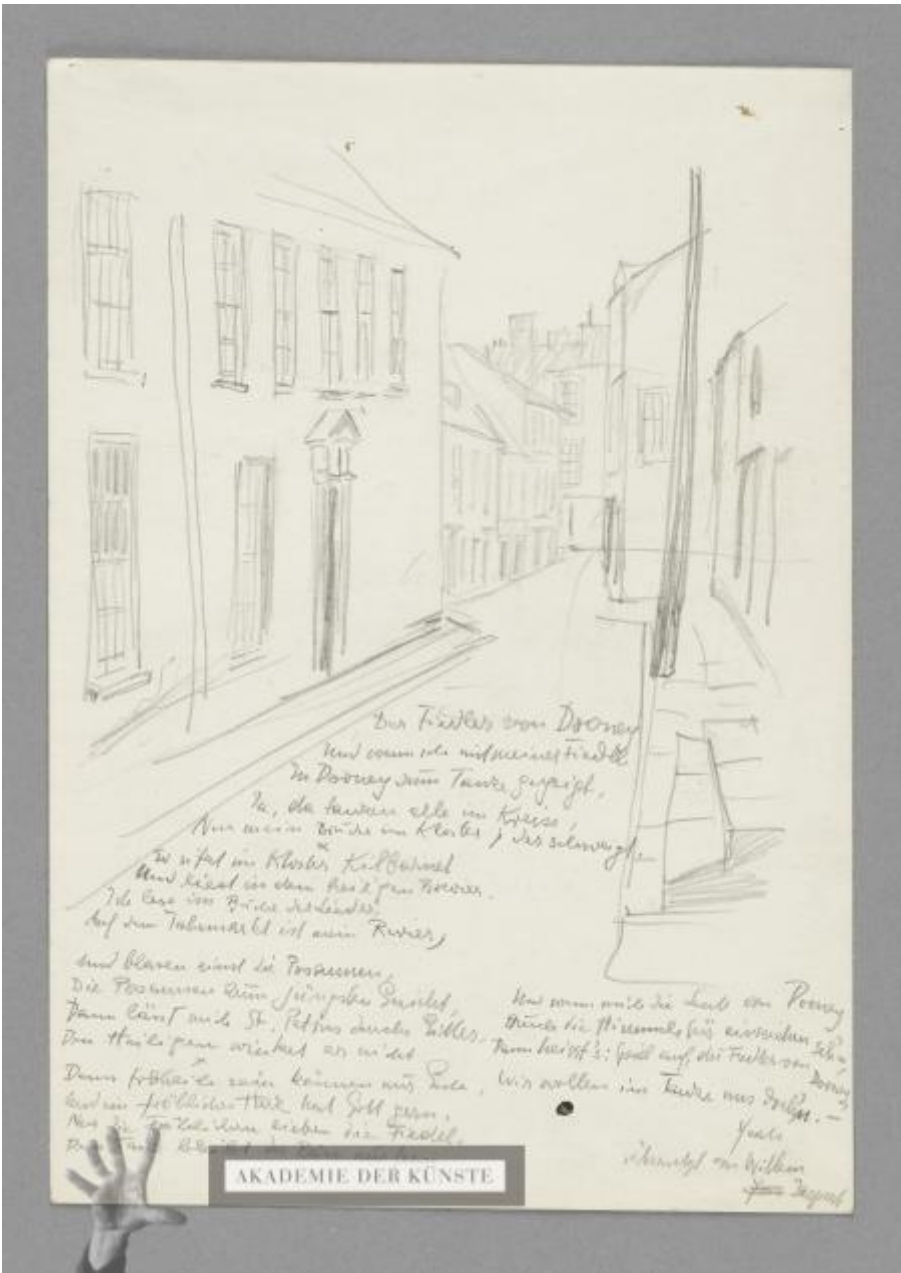 Der Fiedler von Dooney
Und wenn ich mit meiner Fiedel
In Dooney zum Tanze gegeigt,
Ja, da tanzen alle im Kreise,
Nur mein Bruder im Kloster, der schweigt.
Er sitzt im Kloster
Und liest in dem heil'gen Brevier.
Ich lese im Buche der Lieder,
Auf dem ist mein Revier,
und blasen einst die Posaunen,
Die Posaunen zum jüngsten Gericht,
Dann lässt mich St. Petrus durchs Gitter,
Den Heiligen winket er nicht
Denn fröhlich sein können nur Gute,
Und ein fröhliches Herz hat Gott gern.
Nur die Fröhlichen lieben die Fiedel,
Und wenn mich die Leut von Dooney
Durch die Himmelstür sehn
Dann heisst's: Spiel auf, du Fiedler von Dooney
Wir wollen im Tanze uns drehn. –
Yeats
übersetzt von
AKADEMIE DER KÜNSTE